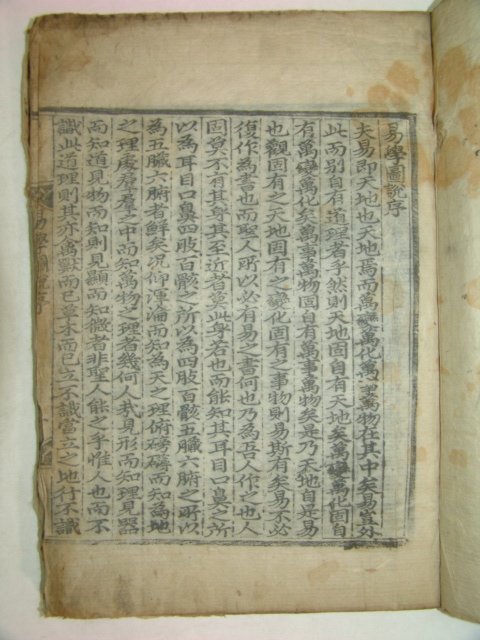 易學圖說序
夫易即天地也天地焉而萬變萬化萬事萬物在其中矣易豈外
此而別自有道理者乎然則天地固自有天地矣萬變萬化固自
有萬變萬化矣萬事萬物固自有萬事萬物矣是乃天地自是易
也觀固有之天地固有之變化固有之事物則易斯有矣易不必
復作為書也而聖人所以必有易之書何也乃為吾人作之也人
固莫不有其身其至近者莫此身若也而能知其耳目口鼻之所
以為耳目口鼻四肢百骸之所以為四肢百骸五臟六腑之所以
為五臟六腑者鮮矣况仰渾淪而知為天之理俯磅礴而知為地
之理處羣羣之中而知萬物之理者幾何人哉見形而知理見器
而知道見物而知則見顯而知微者非聖人能之乎惟人也而不
識此道理則其亦禽獸而已草木而已立不識當立之地行不識